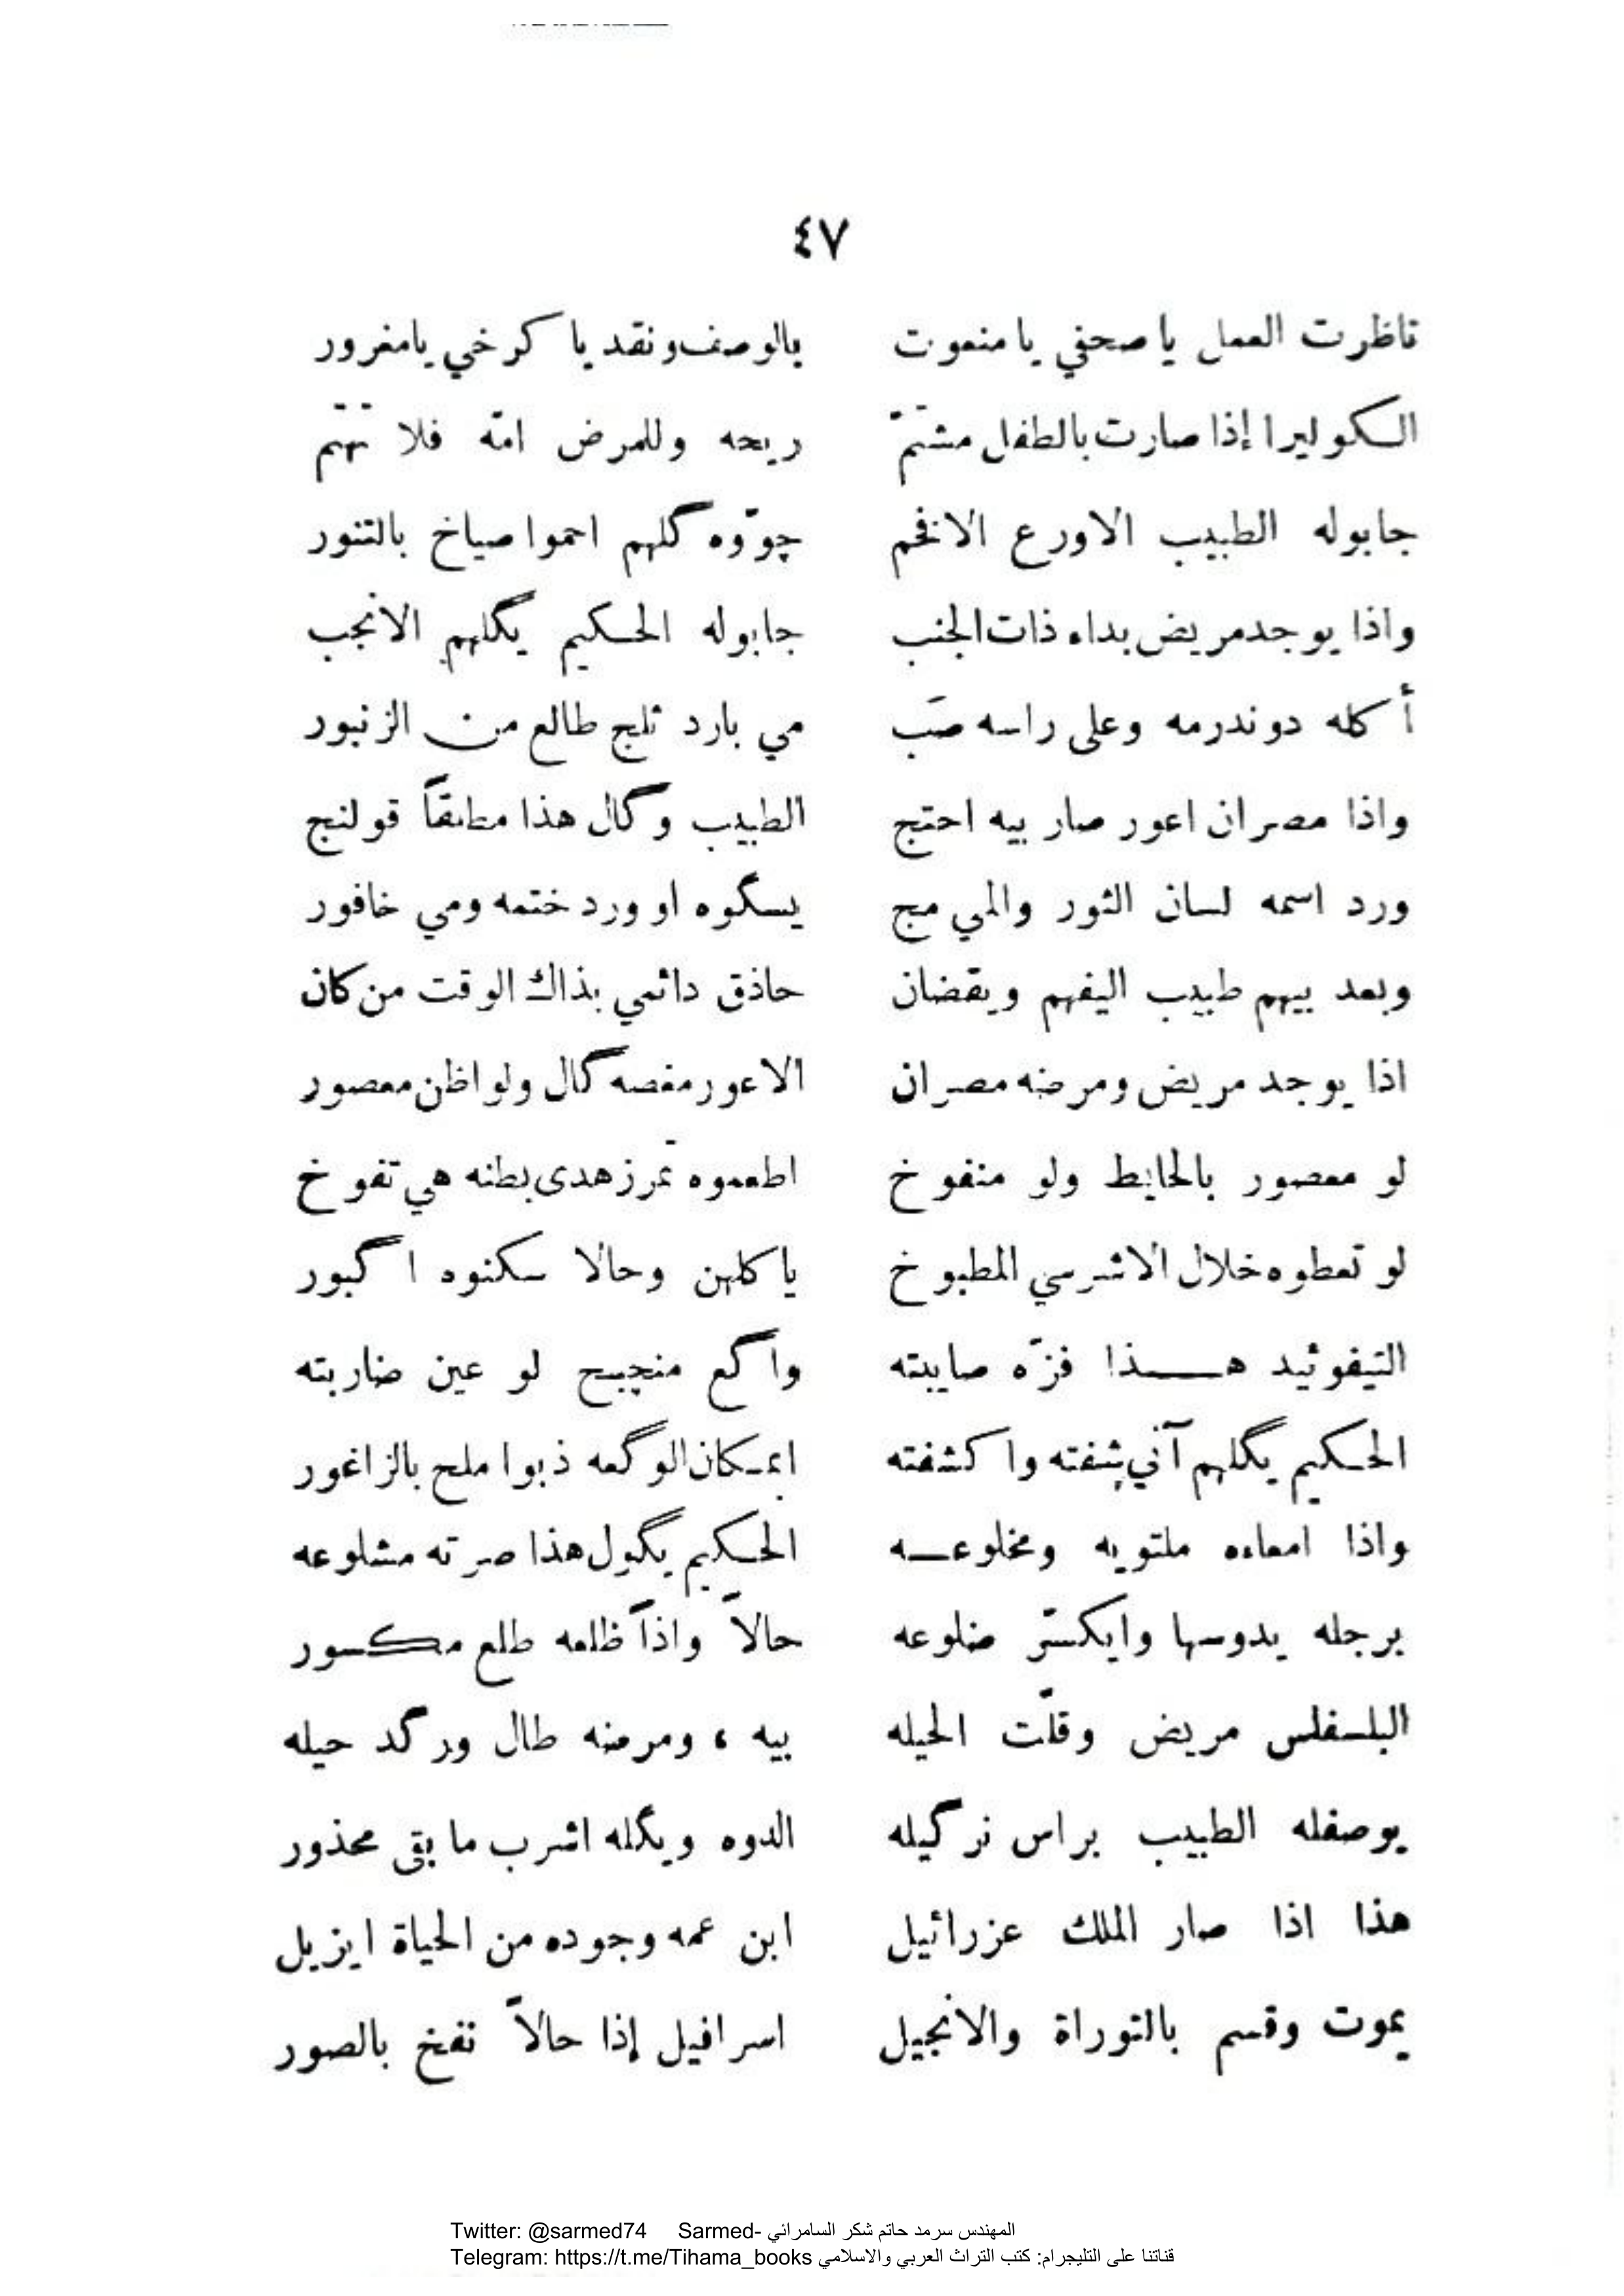 ٤٧
ناظرت العمل يا صحفي يا منعوت بالوصف ونقد يا كرخي يامغرور
السكوليرا إذا صارت بالطفل مشتمّ ريحه وللمرض امّه فلا تهتم
جابوله الطبيب الاورع الافخم چوّوه گلهم احموا صياخ بالتنور
واذا يوجد مريض بداء ذات الجنب جابوله الحكيم يگلهم الانجب
أكله دوندرمه وعلى راسه صَب مي بارد ثلج طالع من الزنبور
واذا مصران اعور صار بيه احتج الطبيب وگال هذا مطبقاً قولنج
ورد اسمه لسان الثور والمي مج يسگوه او ورد ختمه ومي خافور
وبعد بيهم طبيب اليفهم ويقضان حاذق دائمي بذاك الوقت من كان
اذا يوجد مريض ومرضه مصران الاعور مغصه گال ولو اظن معصور
لو معصور بالحايط ولو منفوخ اطعموه تمر زهدى بطنه هي تفوخ
لو تعطوه خلال الاشرسي المطبوخ ياكلهن وحالا سكنوه اگبور
التيفوئيد هـــذا فزّه صايبته واگع منچبح لو عين ضاربته
الحكيم يگلهم آني شفته واكشفته ابمكان الوگعه ذبوا ملح بالزاغور
واذا امعاءه ملتويه ومخلوعــه الحكيم يگول هذا صرته مشلوعه
برجله يدوسها وايكسّر ضلوعه حالاً واذاً ظلعه طلع مكسور
البلسفلس مريض وقلّت الحيله بيه ، ومرضه طال وركد حيله
يوصفله الطبيب براس نرگيله الدوه ويگله اشرب ما بقى محذور
هذا اذا صار الملك عزرائيل ابن عمه وجوده من الحياة ايزيل
يموت وقسم بالتوراة والانجيل اسرافيل إذا حالاً نفخ بالصور
Twitter: @sarmed74 Sarmed- المهندس سرمد حاتم شكر السامرائي
Telegram: https://t.me/Tihama_books قناتنا على التليجرام: كتب التراث العربي والاسلامي